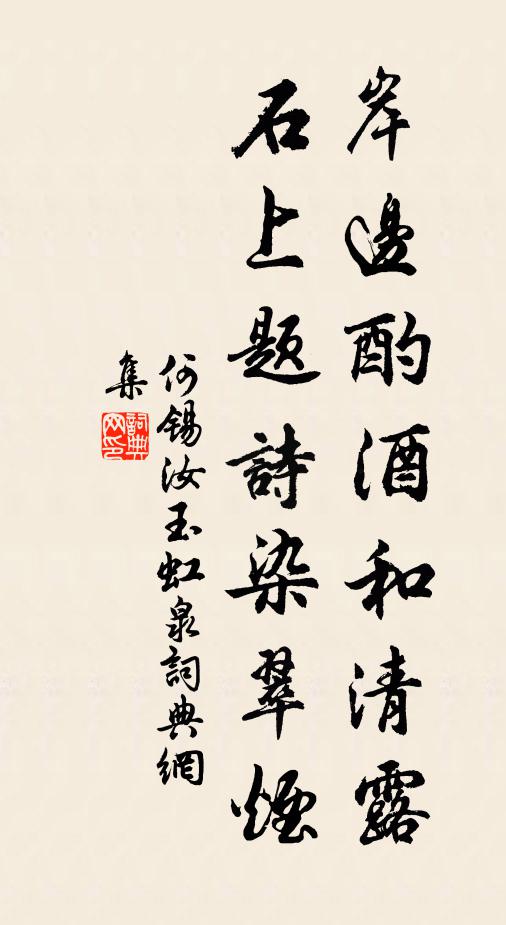 岸邊酌酒和清露
石上題詩染翠煙
何錫汝玉虹泉詞典網
集
詞典網印